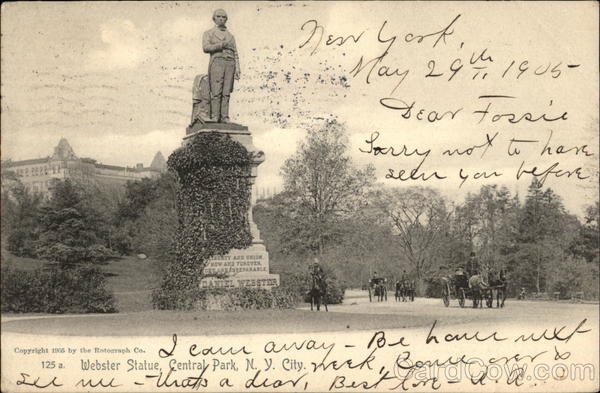 New York,
May 29th, 1905
Dear Fossie
Sorry not to have
seen you before
LIBERTY AND UNION,
NOW AND FOREVER,
ONE AND INSEPARABLE
DANIEL WEBSTER
Copyright 1905 by the Rotograph Co.
125 a. Webster Statue, Central Park, N. Y. City.
I came away - Be home next
week, Come over &
see me - thats a dear, Best love - A.R.
CardCow.com